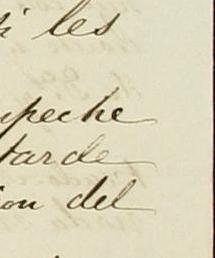 si les
upeche
tarde
ion del